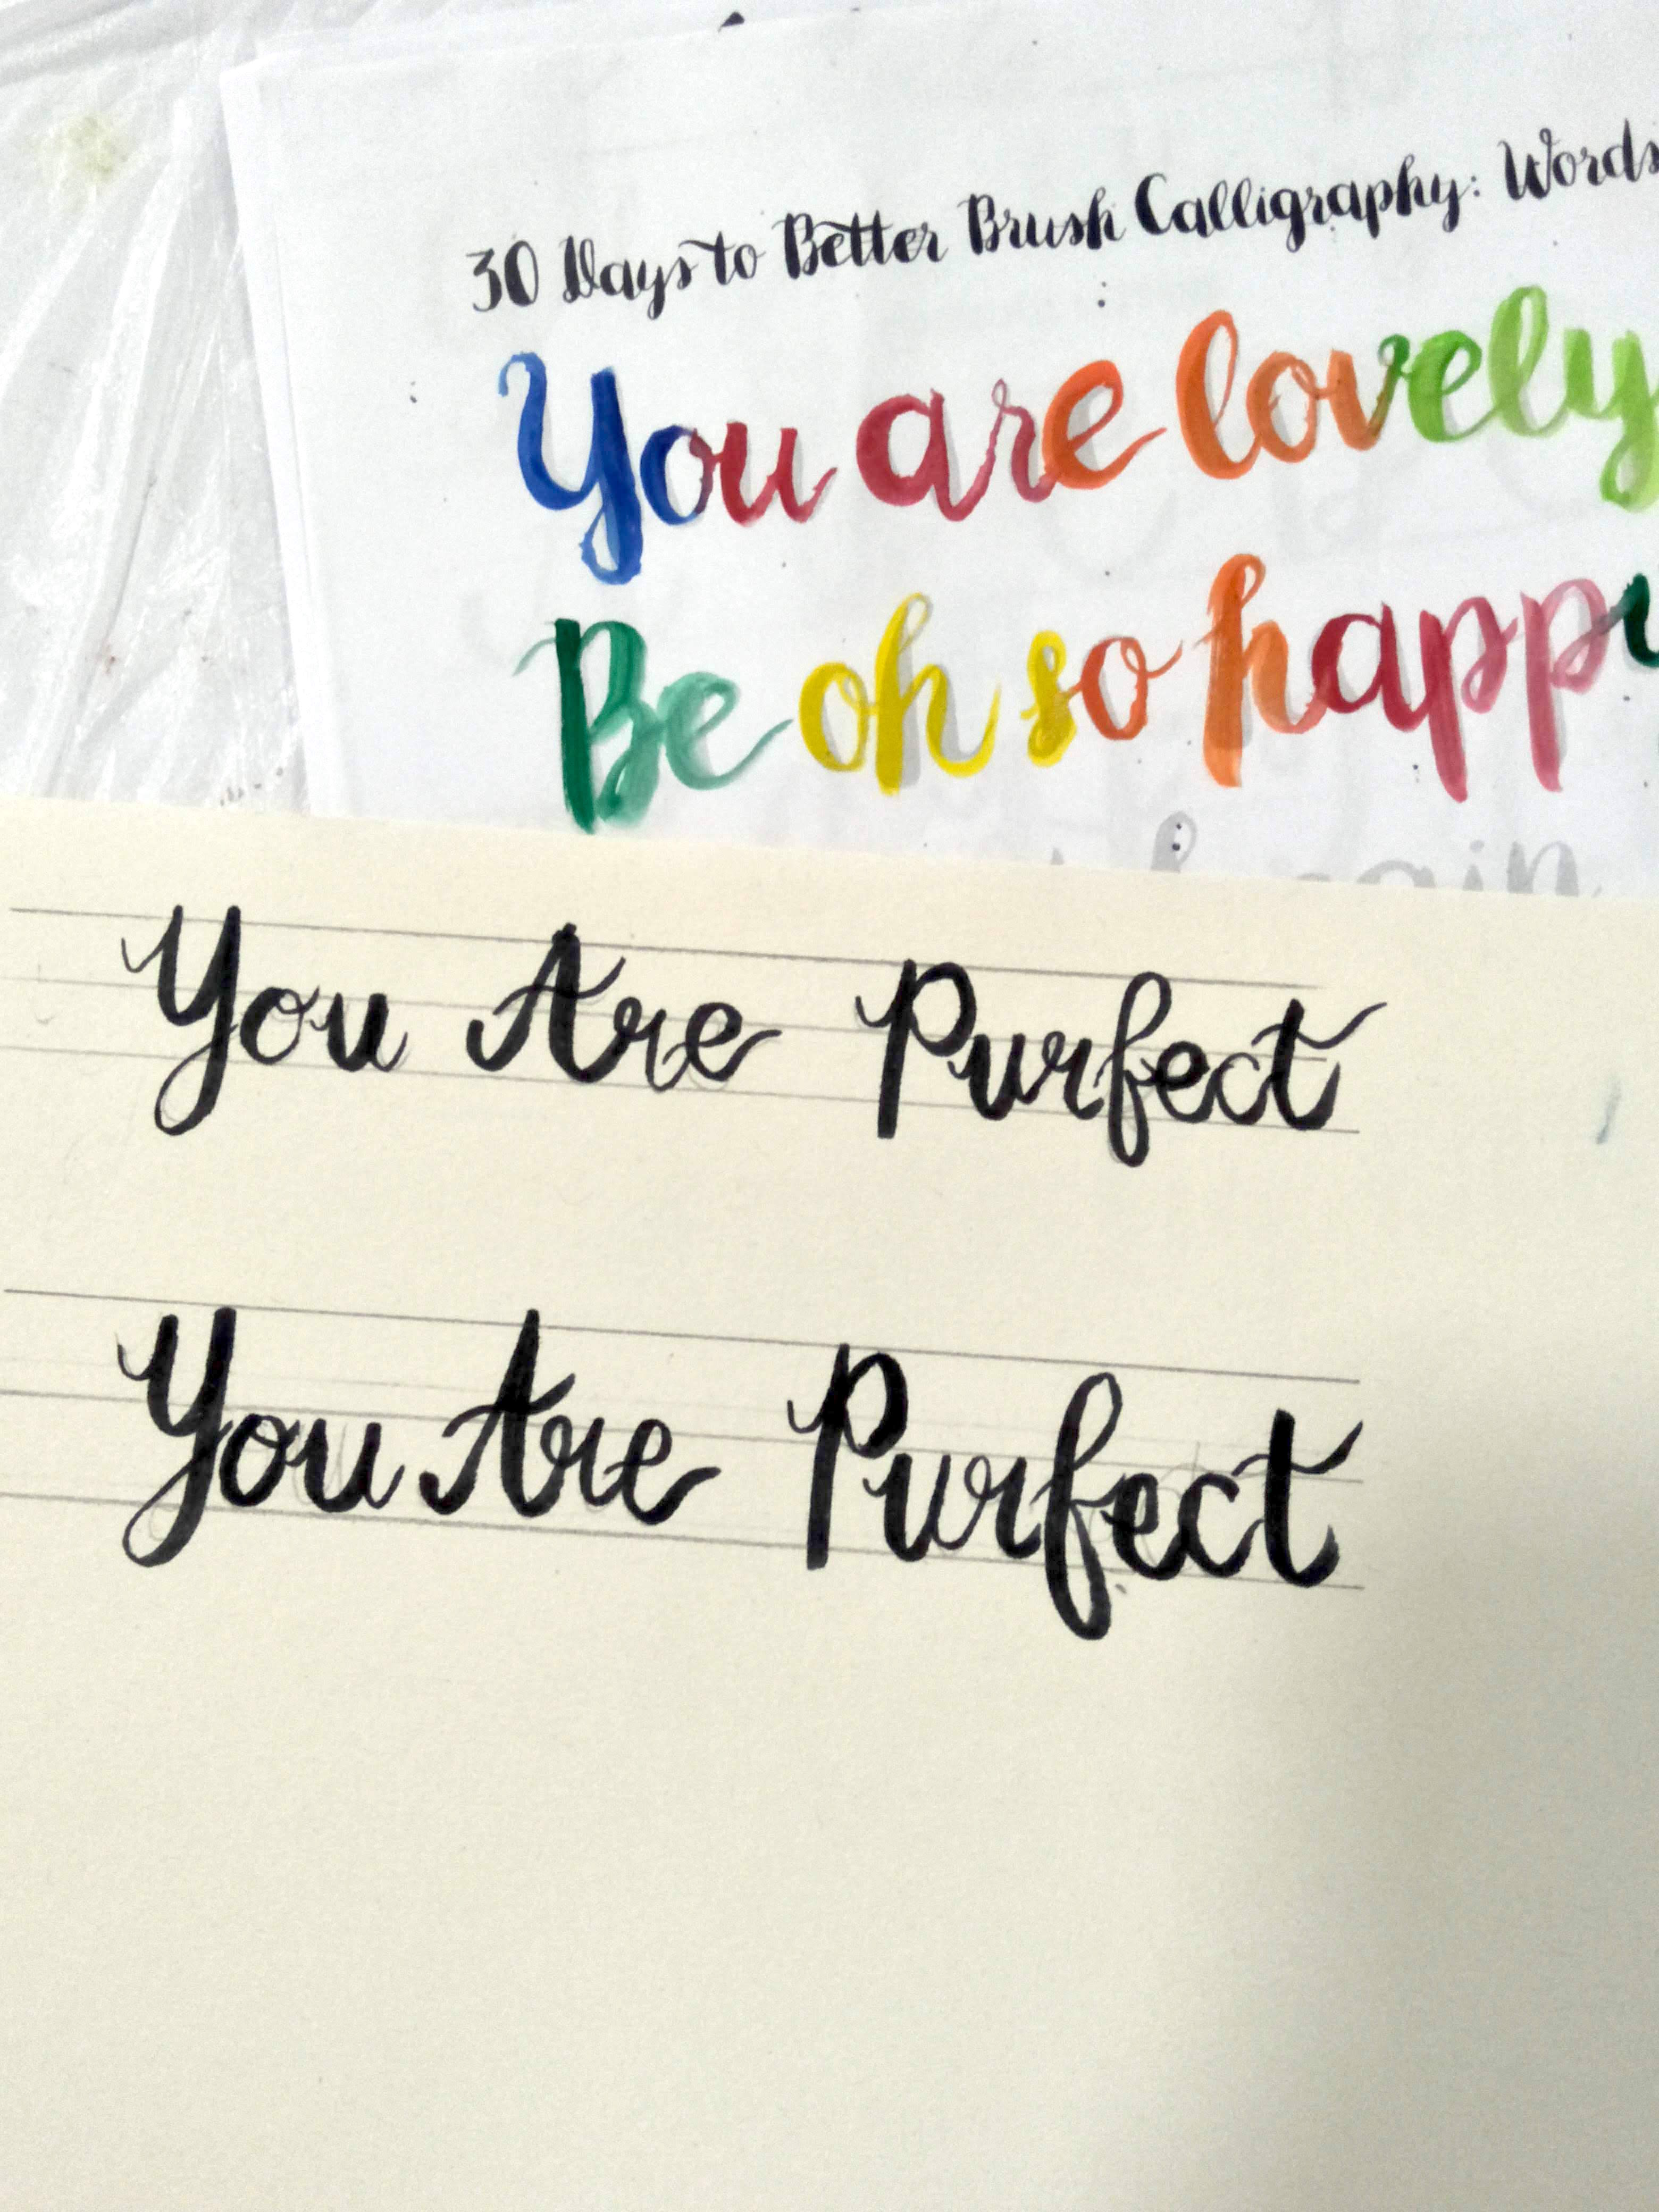 30 Days to Better Brush Calligraphy: Words
You are lovely
Be oh so happy
You Are Purfect
You Are Purfect